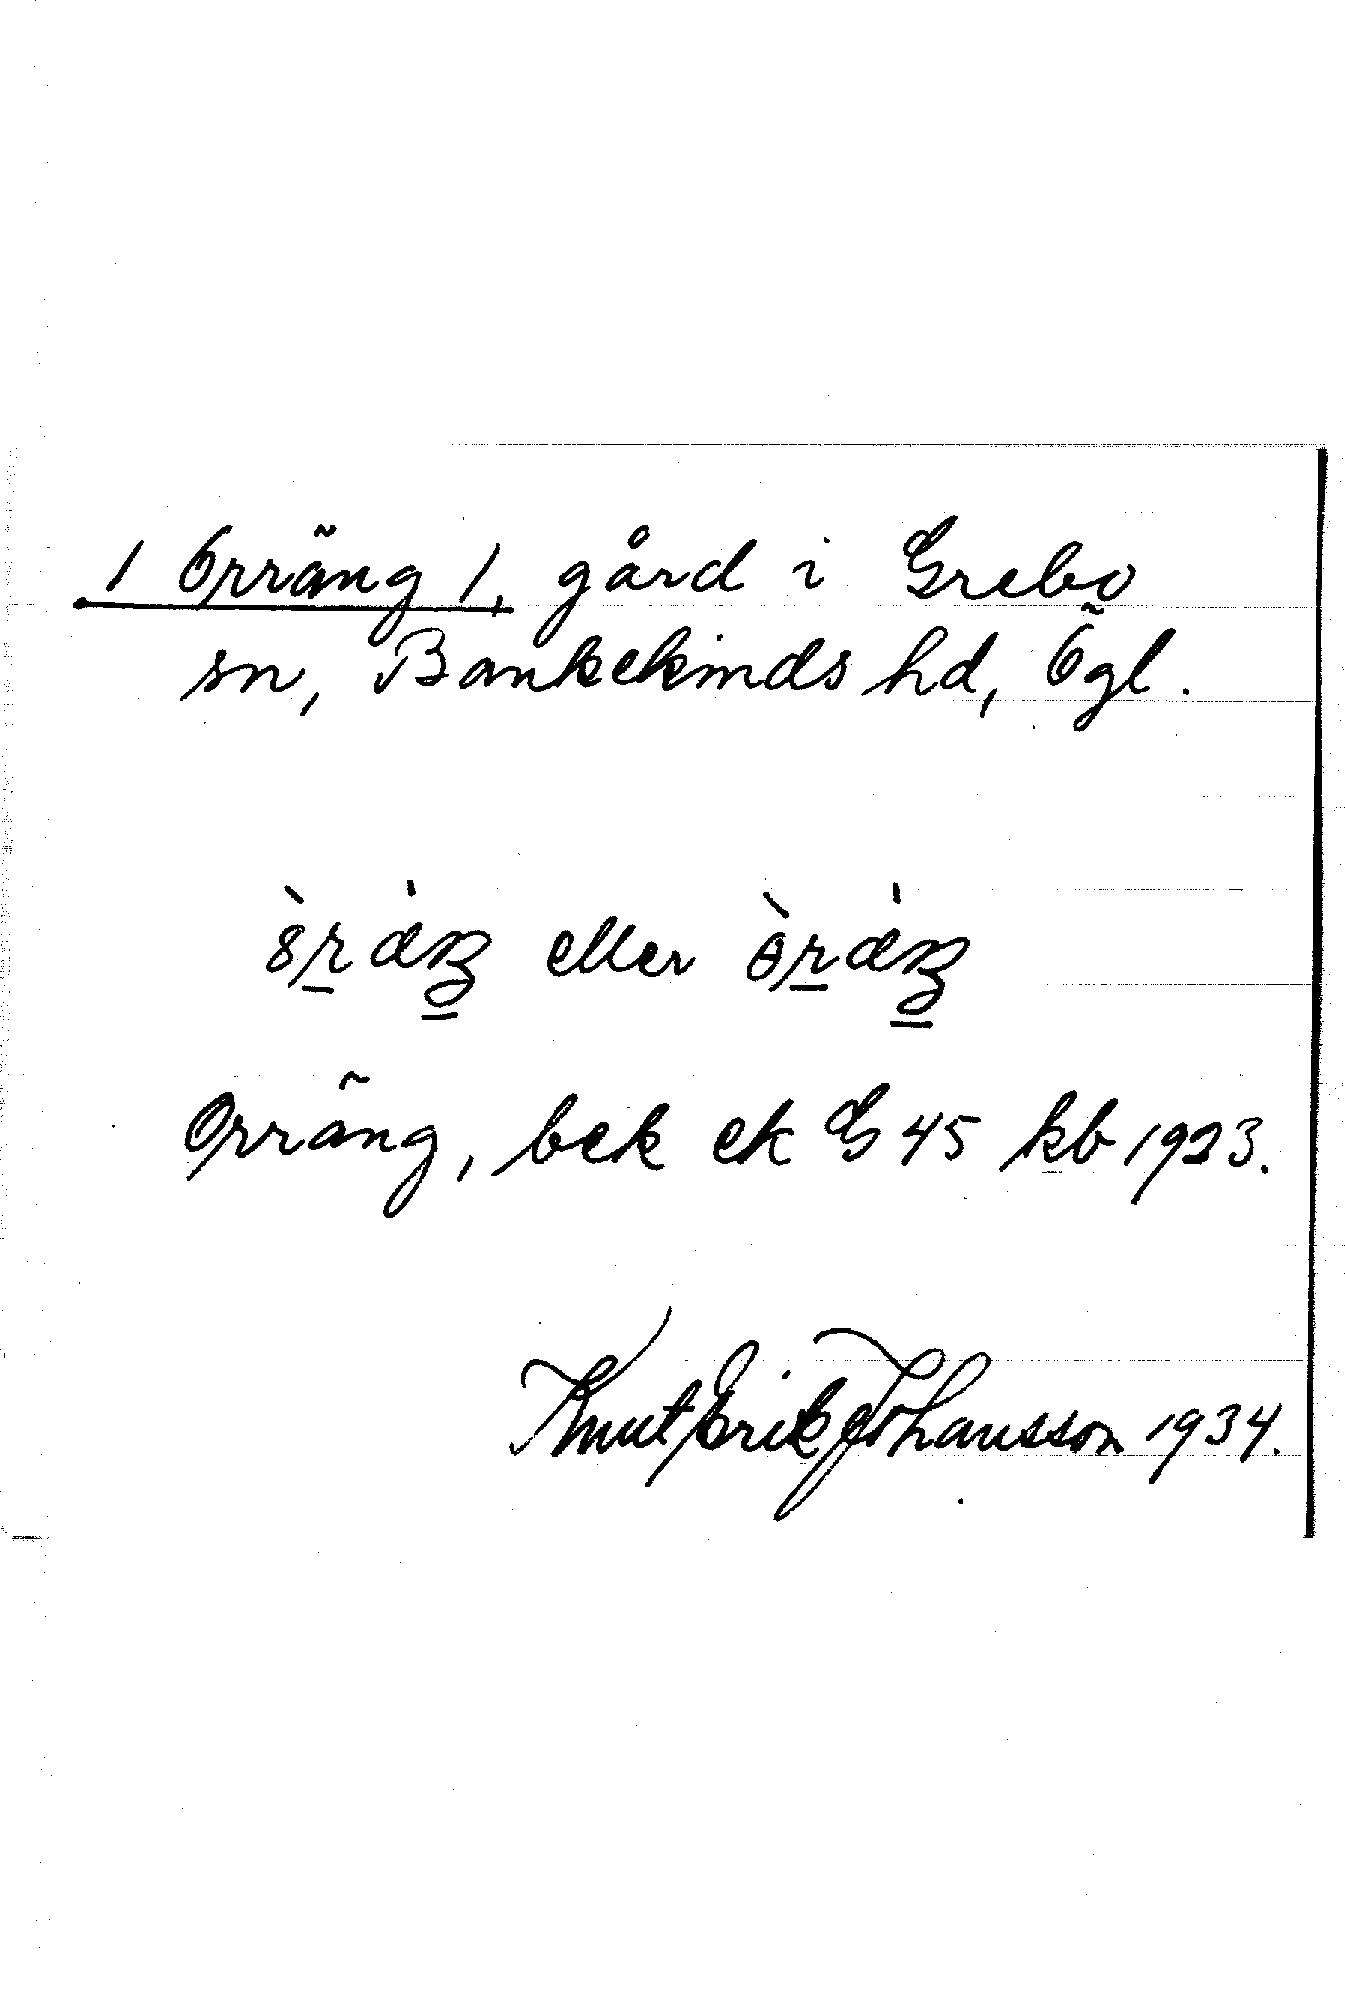 / Orräng /, gård i Grebo
sn, Bankekinds hd, Ögl.
eller
Orräng, bek ek G 45 kb 1923.
Knut Erik Johansson 1934.